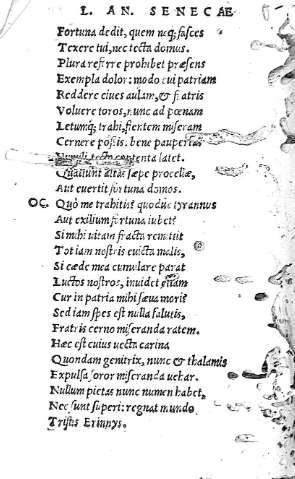 L. AN. SENECAE
Fortuna dedit, quem neq; fasces
Texere tui, nec tecta domus.
Plura referre prohibet præsens
Exempla dolor: modo cui patriam
Reddere ciues aulam, & fratris
Voluere toros, nunc ad pœnam
Letumq; trahi, flentem miseram
Cernere possis. bene paupertas
Humili tecto contenta latet.
Quatiunt altas sæpe procellæ,
Aut euertit fortuna domos.
OC. Quò me trahitis? quodue tyrannus
Aut exilium fortuna iubet?
Si mihi uitam fracta remittit
Tot iam nostris euicta malis,
Si cæde mea cumulare parat
Luctus nostros, inuidet etiam
Cur in patria mihi sæua mori?
Sed iam spes est nulla salutis,
Fratris cerno miseranda ratem.
Hæc est cuius uecta carina
Quondam genitrix, nunc & thalamis
Expulsa soror miseranda uehar.
Nullum pietas nunc numen habet,
Nec sunt superi: regnat mundo
Tristis Erinnys.